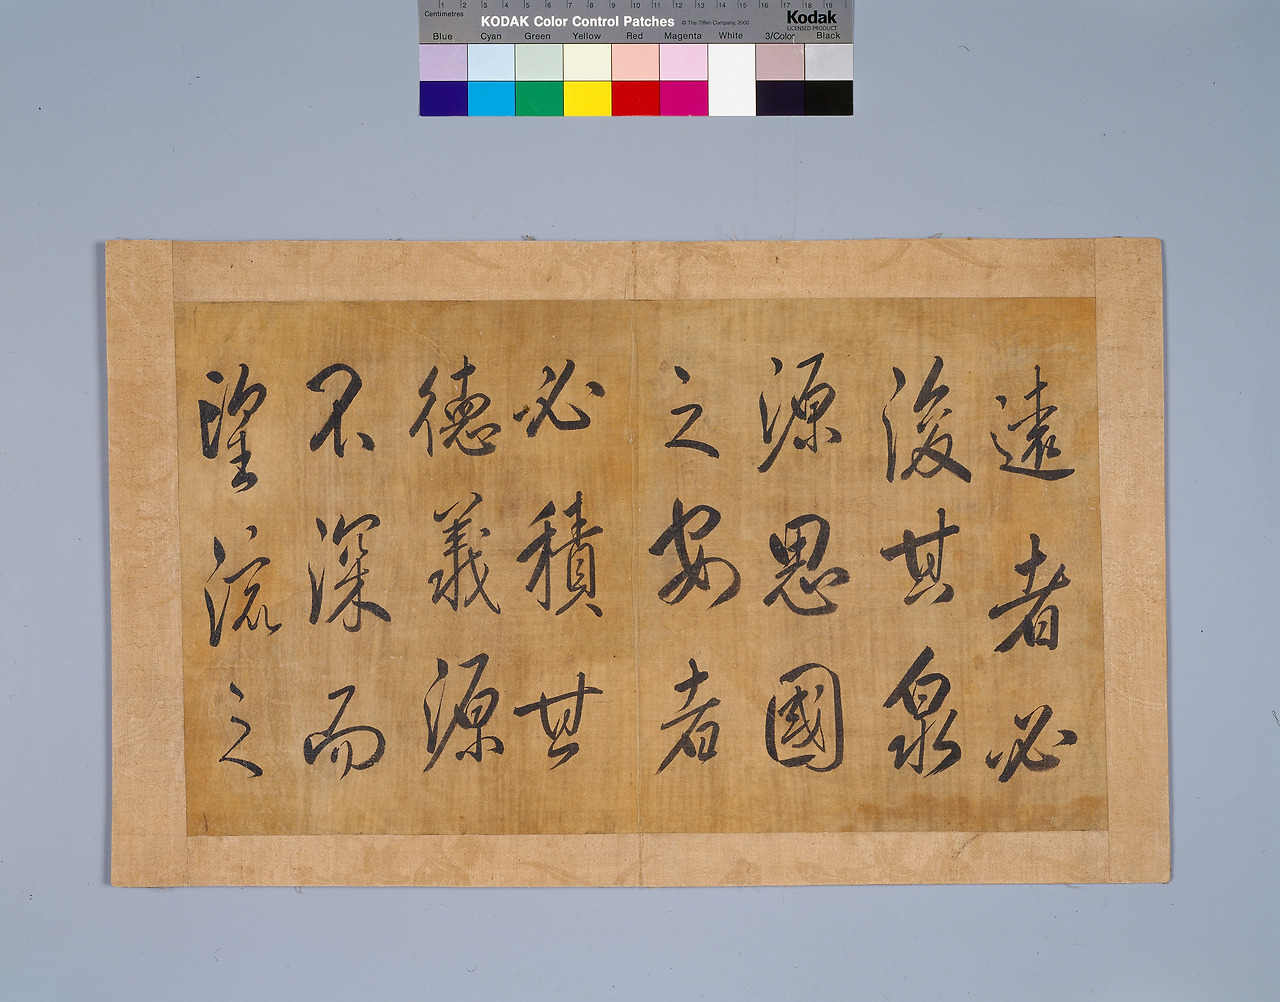 1 2 3 4 5 6 7 8 9 10 11 12 13 14 15 16 17 18 19
Centimetres
KODAK Color Control Patches © The Tiffen Company, 2000
Kodak
LICENSED PRODUCT
Blue Cyan Green Yellow Red Magenta White 3/Color Black
遠者必
浚其泉
源思國
之安者
必積其
德義源
不深而
望流之